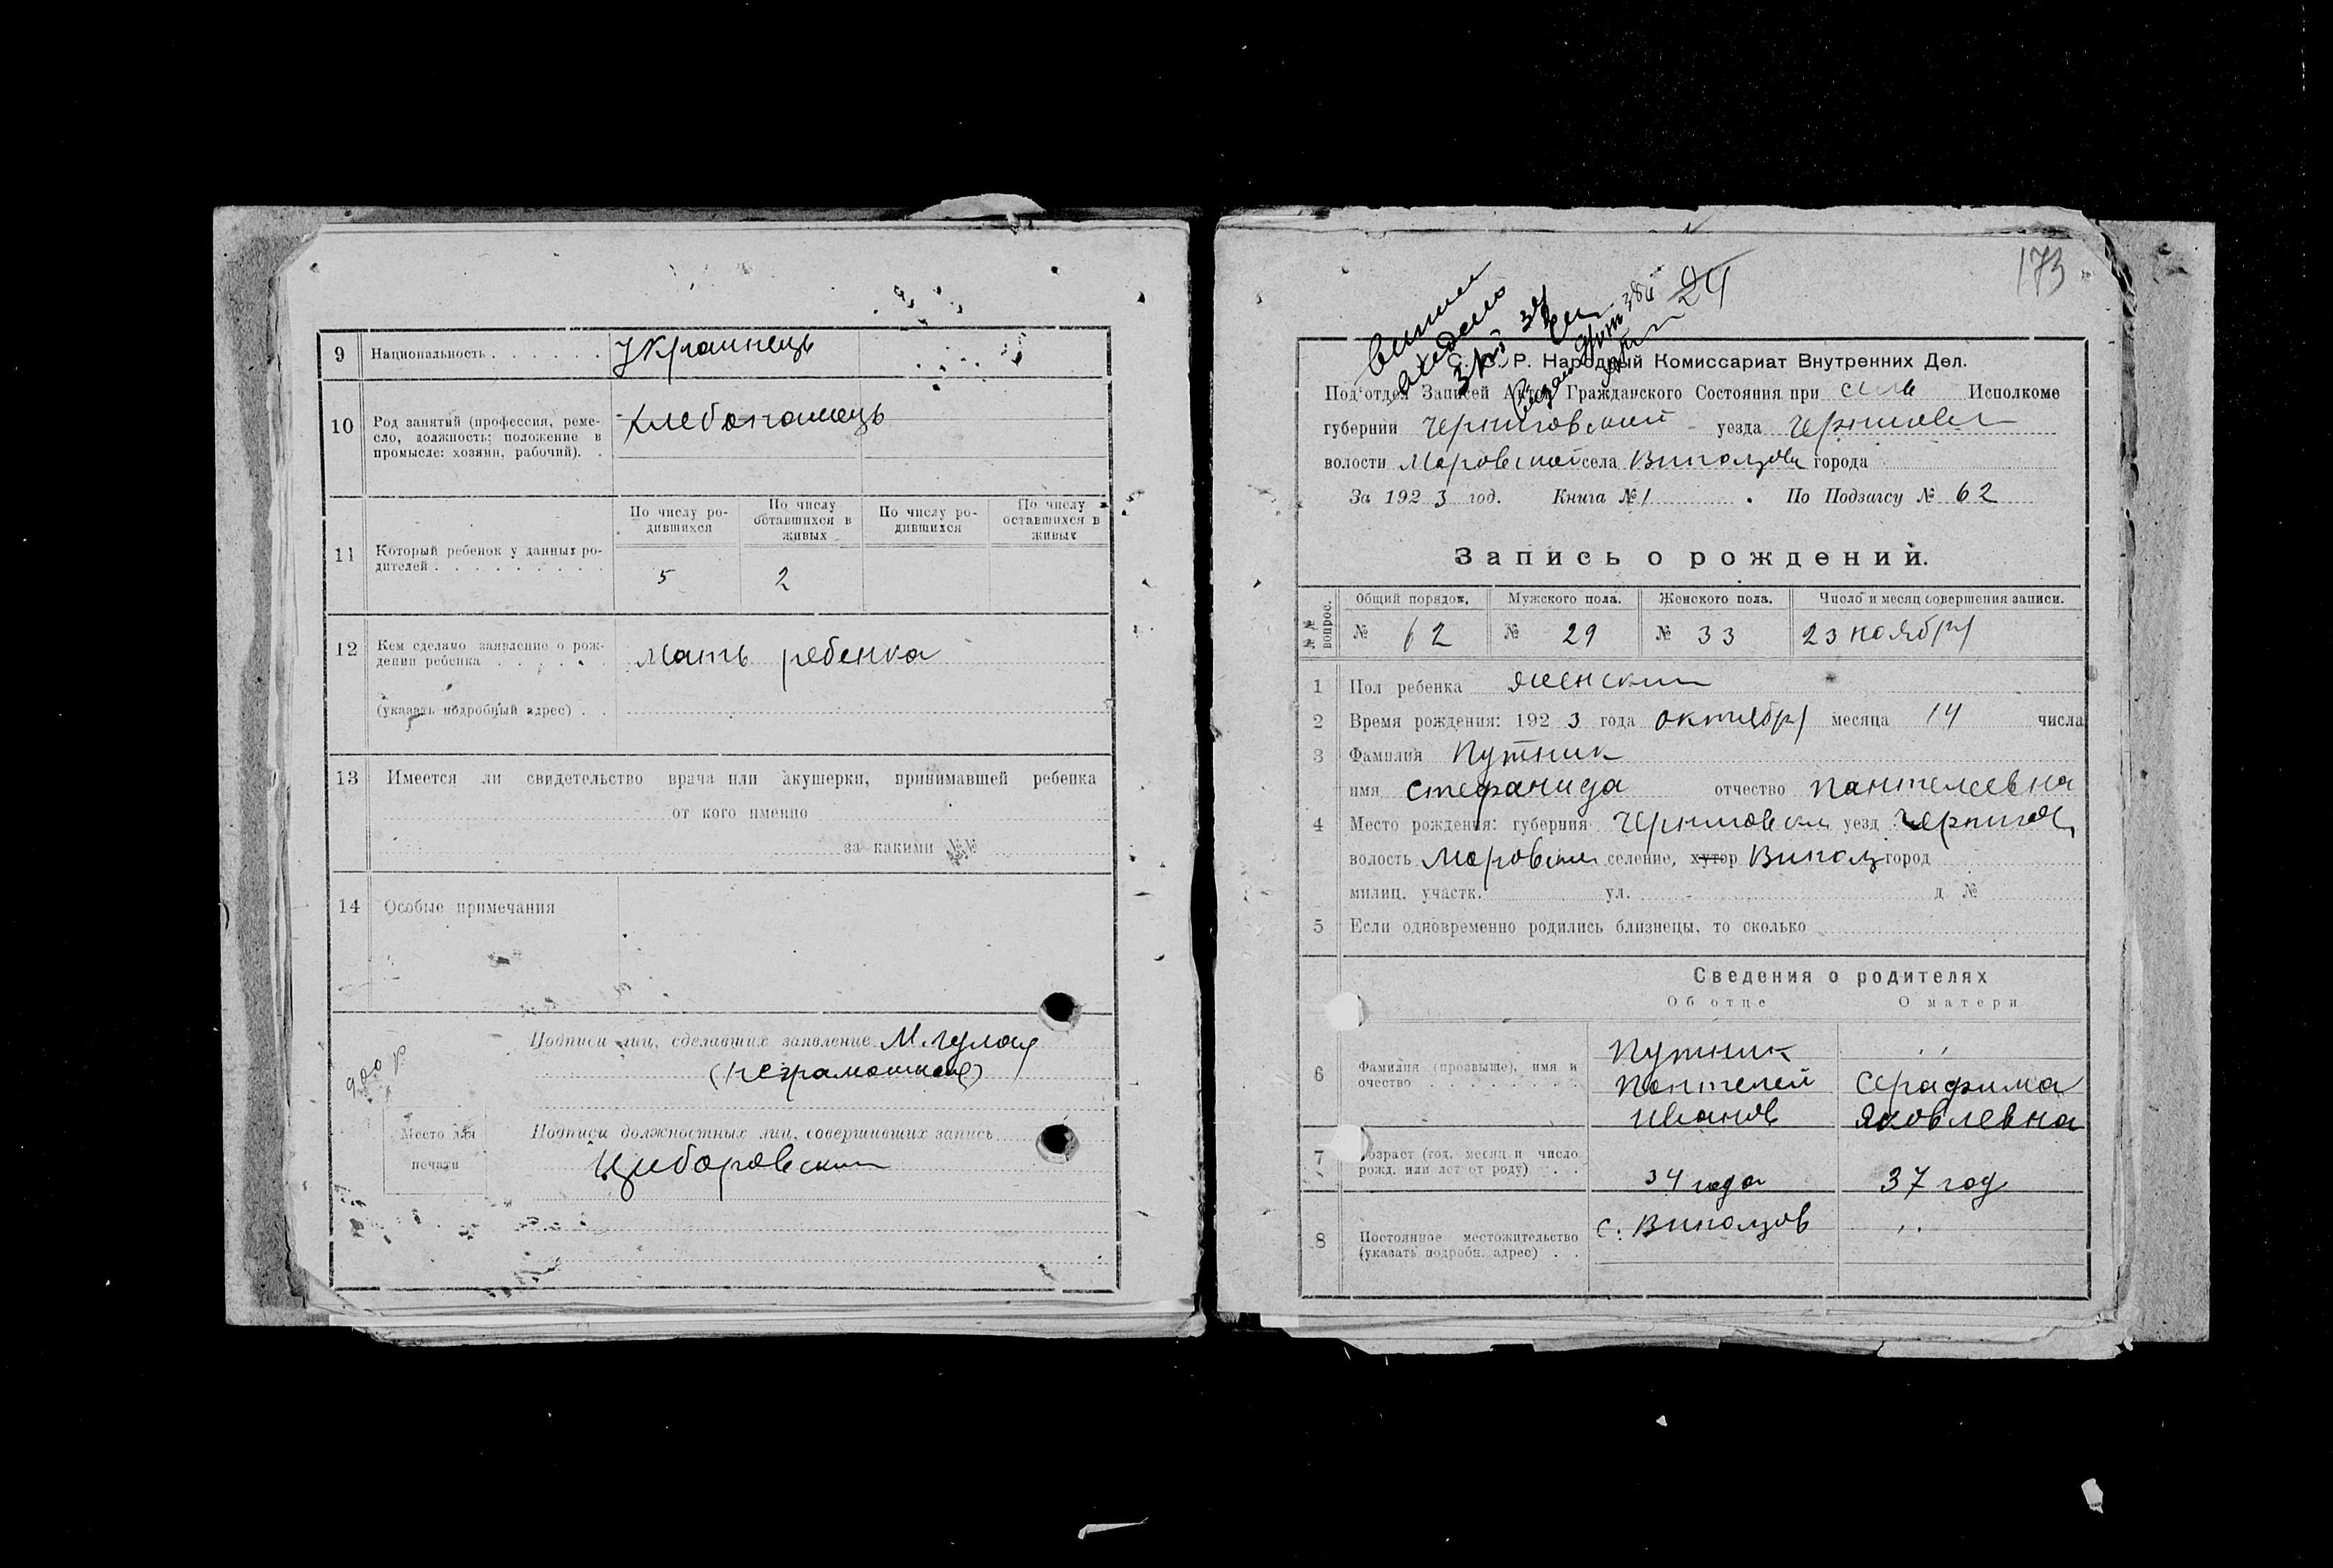 9 Национальность . . . . . . Українець
10 Род занятий (профессия, реме-
сло, должность; положение в
промысле: хозяин, рабочий). .
Хлебопашець
11 Который ребенок у данных ро-
дителей . . . . . . . . .
По числу ро-
дившихся
По числу
оставшихся в
живых
По числу ро-
дившихся
По числу
оставшихся в
живых
5 2
12 Кем сделано заявление о рож-
дении ребенка . . . . . . Мать ребенка
(указать подробный адрес) . .
13 Имеется ли свидетельство врача или акушерки, принимавшей ребенка
от кого именно
за какими №№
14 Особые примечания
900 р
Подписи лиц, сделавших заявление М.
(неграмотная)
Место для
печати
Подписи должностных лиц, совершивших запись
Циборовский
173
24
Р. Народный Комиссариат Внутренних Дел.
Под‘отдел Записей Актов Гражданского Состояния при Исполкоме
губернии Черниговской уезда
волости села города
За 1923 год. Книга №1 . По Подзагсу № 62
Запись о рождений.
№№ вопрос.
Общий порядок. Мужского пола. Женского пола. Число и месяц совершения записи.
№ 62 № 29 № 33 23 ноября
1 Пол ребенка женский
2 Время рождения: 1923 года октября месяца 14 числа
3 Фамилия Путник
имя Стефанида отчество Пантелеевна
4 Место рождения: губерния уезд
волость селение, хутор город
милиц. участк. ул. д №
5 Если одновременно родились близнецы, то сколько
Сведения о родителях
Об отце О матери
6 Фамилия (прозвыше), имя и
очество . . . . . . . .
Путник ,,
Пантелей Серафима
Иванов Яковлевна
7 Возраст (год, месяц и число
рожд. или лет от роду) . . .
34 года 37 год
8 Постоянное местожительство
(указать подробн. адрес) . .
с. ,,